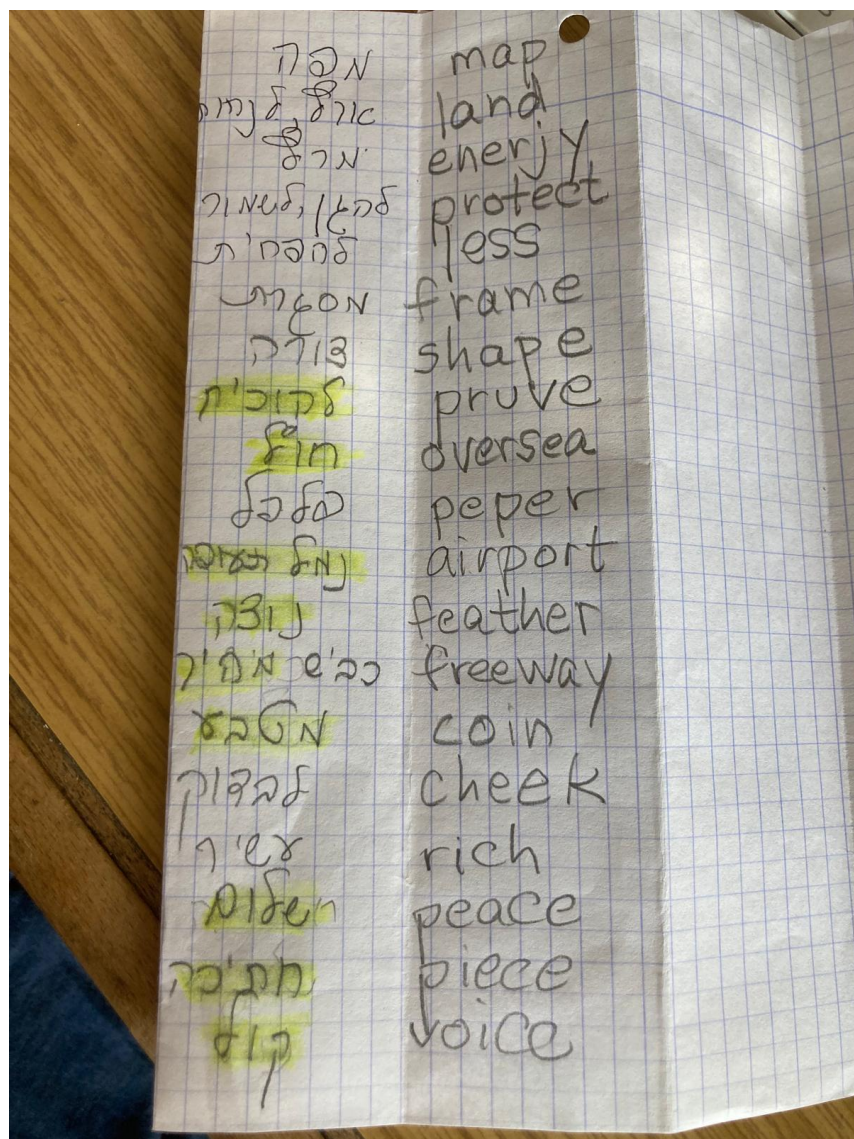 מפה map
ארץ, לנחות land
מרץ enerjy
להגן, לשמור protect
להפחית less
מסגרת frame
צורה shape
להוכיח pruve
חו"ל oversea
פלפל peper
נמל תעופה airport
נוצה feather
כביש מהיר freeway
מטבע coin
לבדוק cheek
עשיר rich
שלום peace
חתיכה piece
קול voice